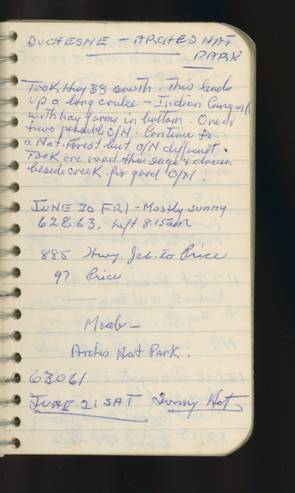 DUCHESNE - ARCHES NAT
PARK
Took Hwy 33 south. This leads
up a long coulee - Indian Canyon
with hay farms in bottom. One or
two possible O/N. Continue to
a Nat. Forest but O/N difficult.
Took one road thru sage & down
beside creek for good O/N.
JUNE 20 FRI - Mostly sunny
62863. Left 8:15am
885 Hwy. Jct. to Price
97 Price
Moab -
Arches Nat Park.
63061
JUNE 21 SAT Sunny Hot